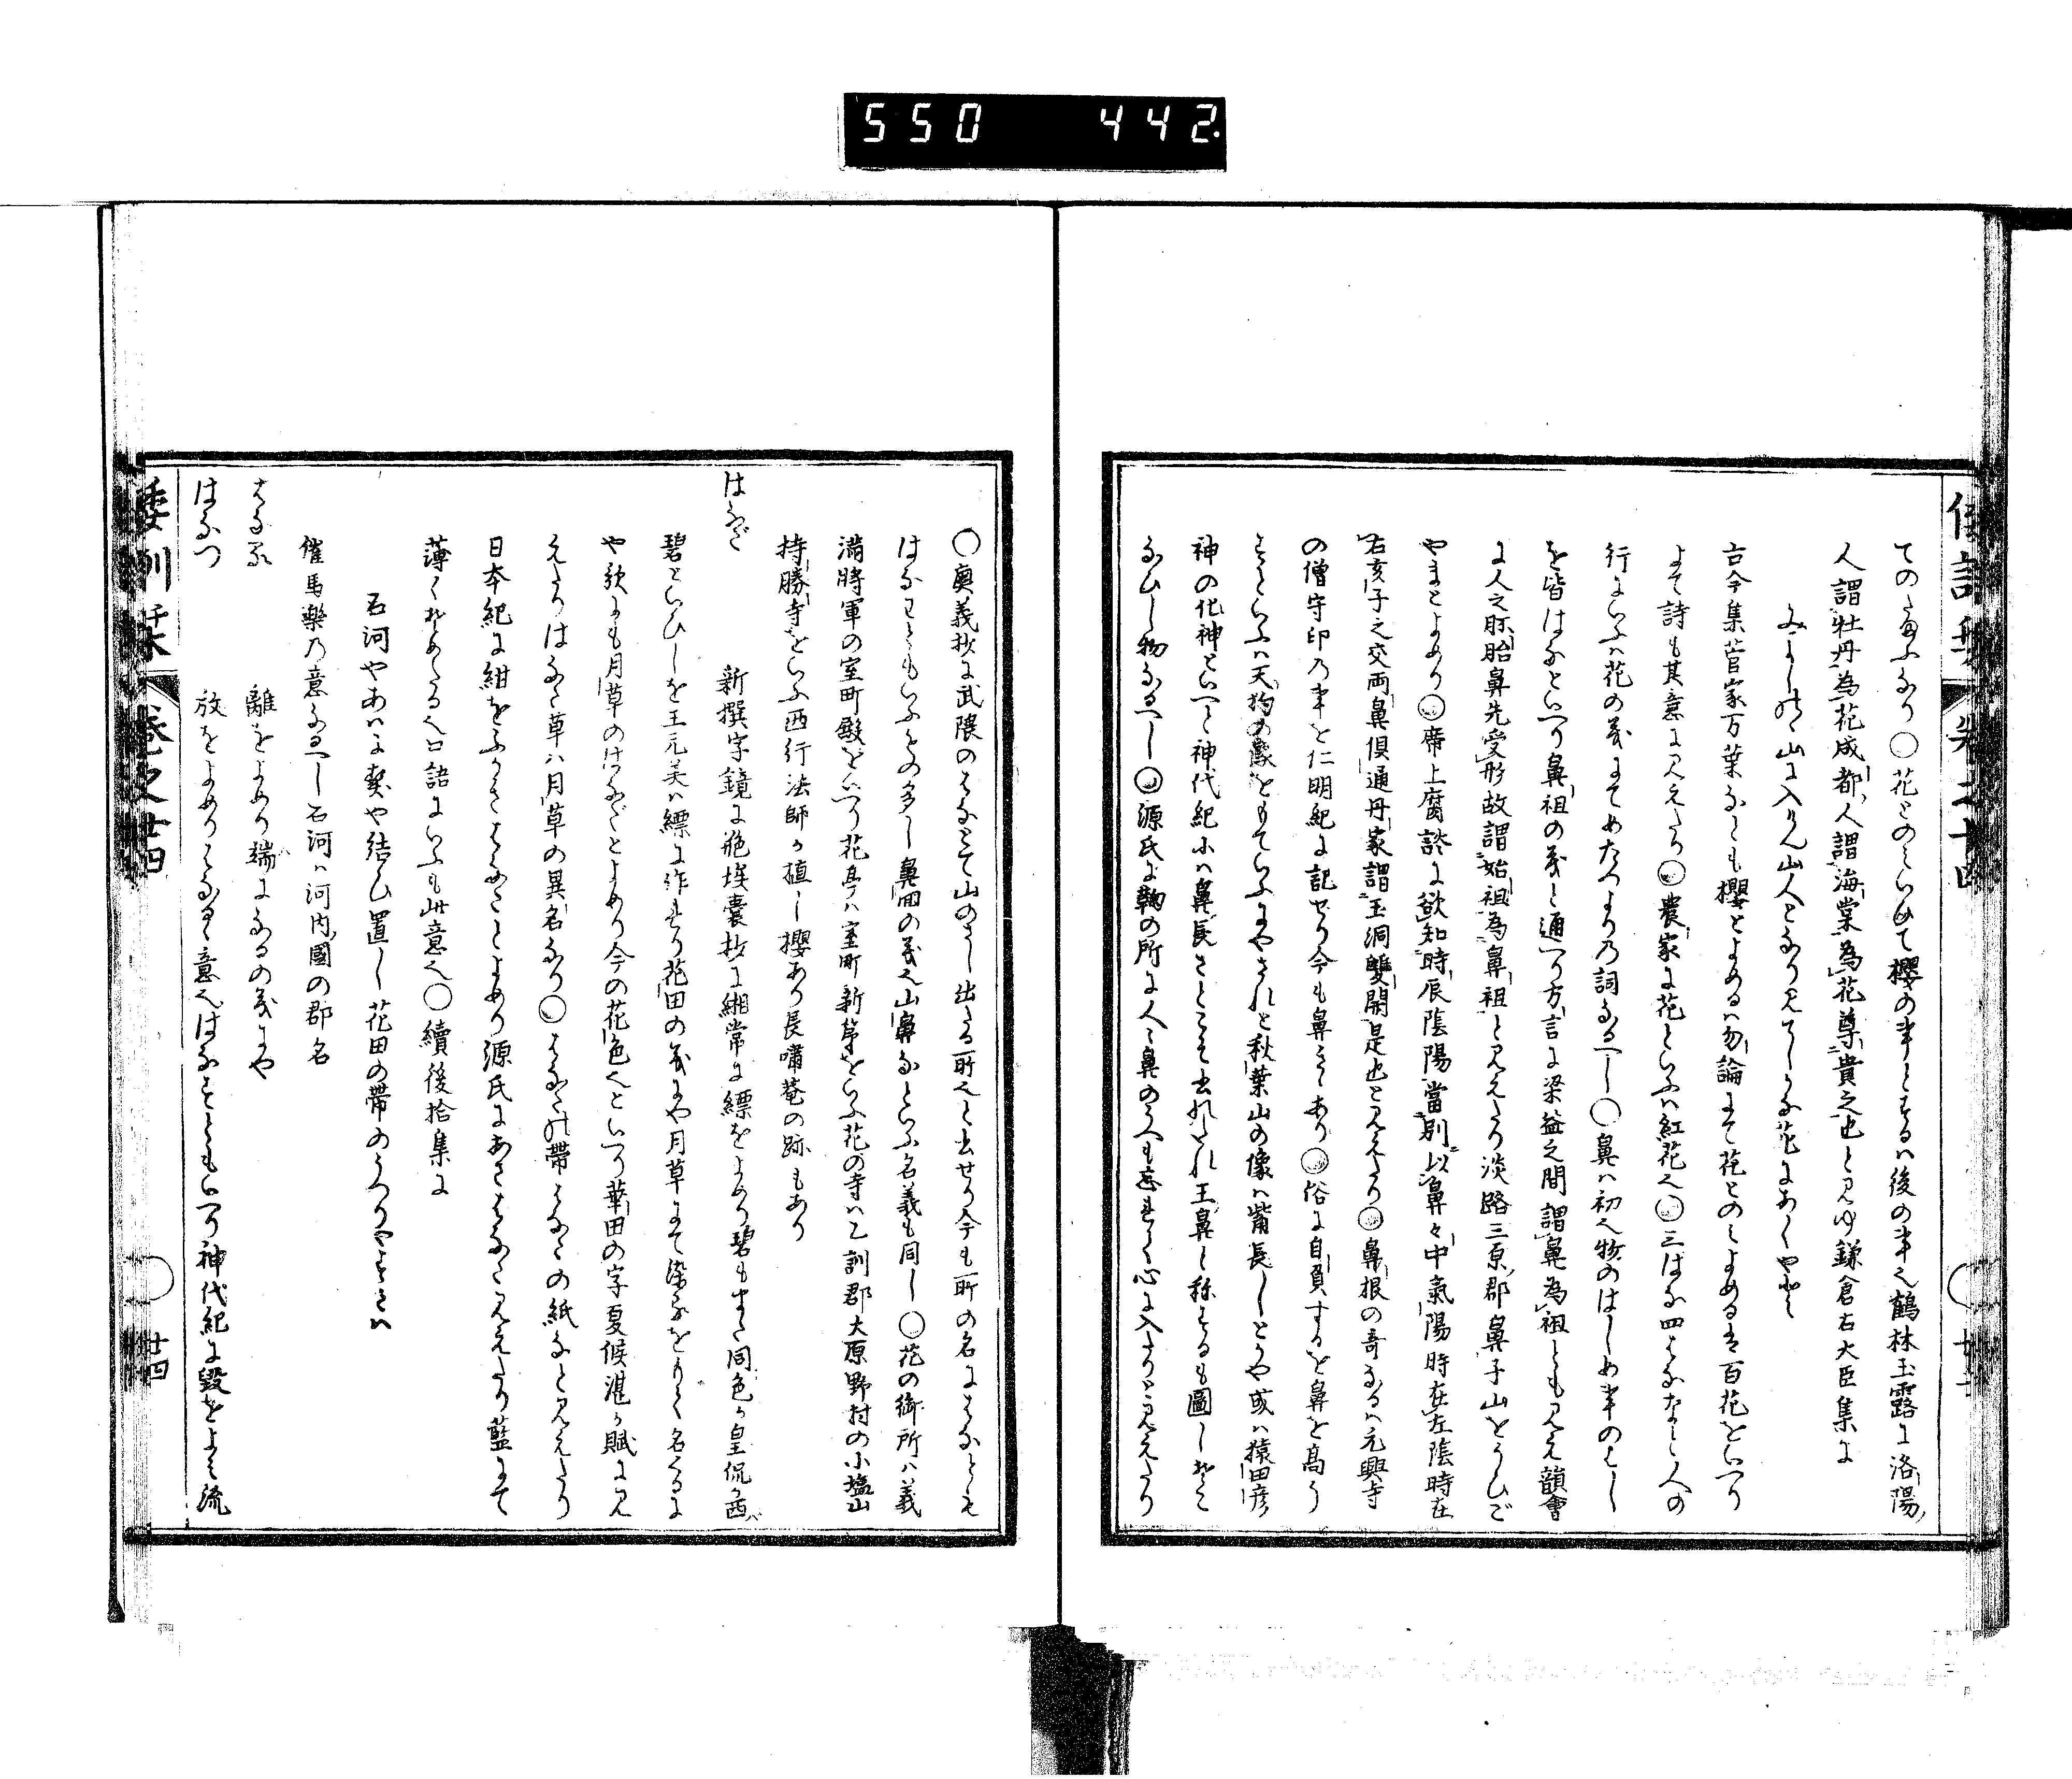 550 442
てのたまふなり○花とのミいひて櫻の事とするハ後の事也鶴林玉露に洛陽人
人謂牡丹為花成都人謂海棠為花尊貴之也と見ゆ鎌倉右大臣集に
みよしのゝ山に入けん山人となり見てしかな花にあくやと
古今集菅家万葉なとも櫻とよめるハ勿論にて花とのミよめるは百花をいへり
よて詩も其意に見えたり○農家に花といふハ紅花也○三はな四はななと人の
行にいふハ花の義にてめたつよりの詞なるへし○鼻ハ初也物のはしめ事のはし
を皆はなといへり鼻祖の義と通へり方言に梁益之間謂鼻為祖とも見え韻會
に人之胚胎鼻先受形故謂始祖為鼻祖と見えたり淡路三原郡鼻子山をうひご
やまとよめり○席上腐談に欲知時辰陰陽當別以鼻々中氣陽時在左陰時在
右亥子之交両鼻倶通丹家謂玉洞雙開是也と見えたり○鼻根の奇なるハ元興寺
の僧守印の事を仁明紀に記せり今も鼻きゝあり○俗に自負するを鼻を高う
すといふハ天狗の像をもていふにやされと秋葉山の像ハ觜長しとかや或ハ猿田彦
神の化神といへと神代紀にハ鼻長さとこそ書れたれ王鼻と称するも圖しけん
なひし物なるへし○源氏に鞠の所に人々鼻のうへも忘れて心に入たりと見えたり
倭訓栞 巻之廿四
○奥義抄に武隈のはなとて山のさし出たる所也と書せり今も所の名にはなとも
はなわともいふもの多し鼻回の義也山鼻なといふ名義も同し○花の御所ハ義
満將軍の室町殿をいへり花亭ハ室町新第をいふ花の寺ハ乙訓郡大原野村の小塩山
持勝寺をいふ西行法師か植し櫻あり長嘯菴の跡もあり
はなだ 新撰字鏡に𦫿埃囊抄に緗常に縹をよめり碧もまた同色か皇侃か西
碧といひしを王元美ハ縹に作れり花田の義にや月草にて染るをもて名くるに
や歌にも月草のはなだとよめり今の花色也といへり華田の字夏候湛か賦に見
えたりはなた草ハ月草の異名なり○はなたの帯はなたの紙なと見えたり
日本紀に紺をふかきはなたとよめり源氏にあさはなた見えたり藍にて
薄くそめたる也口語にいふも此意也○續後拾集に
石河やあハに契や結ひ置し花田の帯のうつりやすきハ
催馬楽の意なるへし石河ハ河内國の郡名
はなる 離をよめり端になるの義にや
はなつ 放をよめりはなるゝ意也はなすともいへり神代紀に毀をよミ流
倭訓栞 巻之廿四 廿四